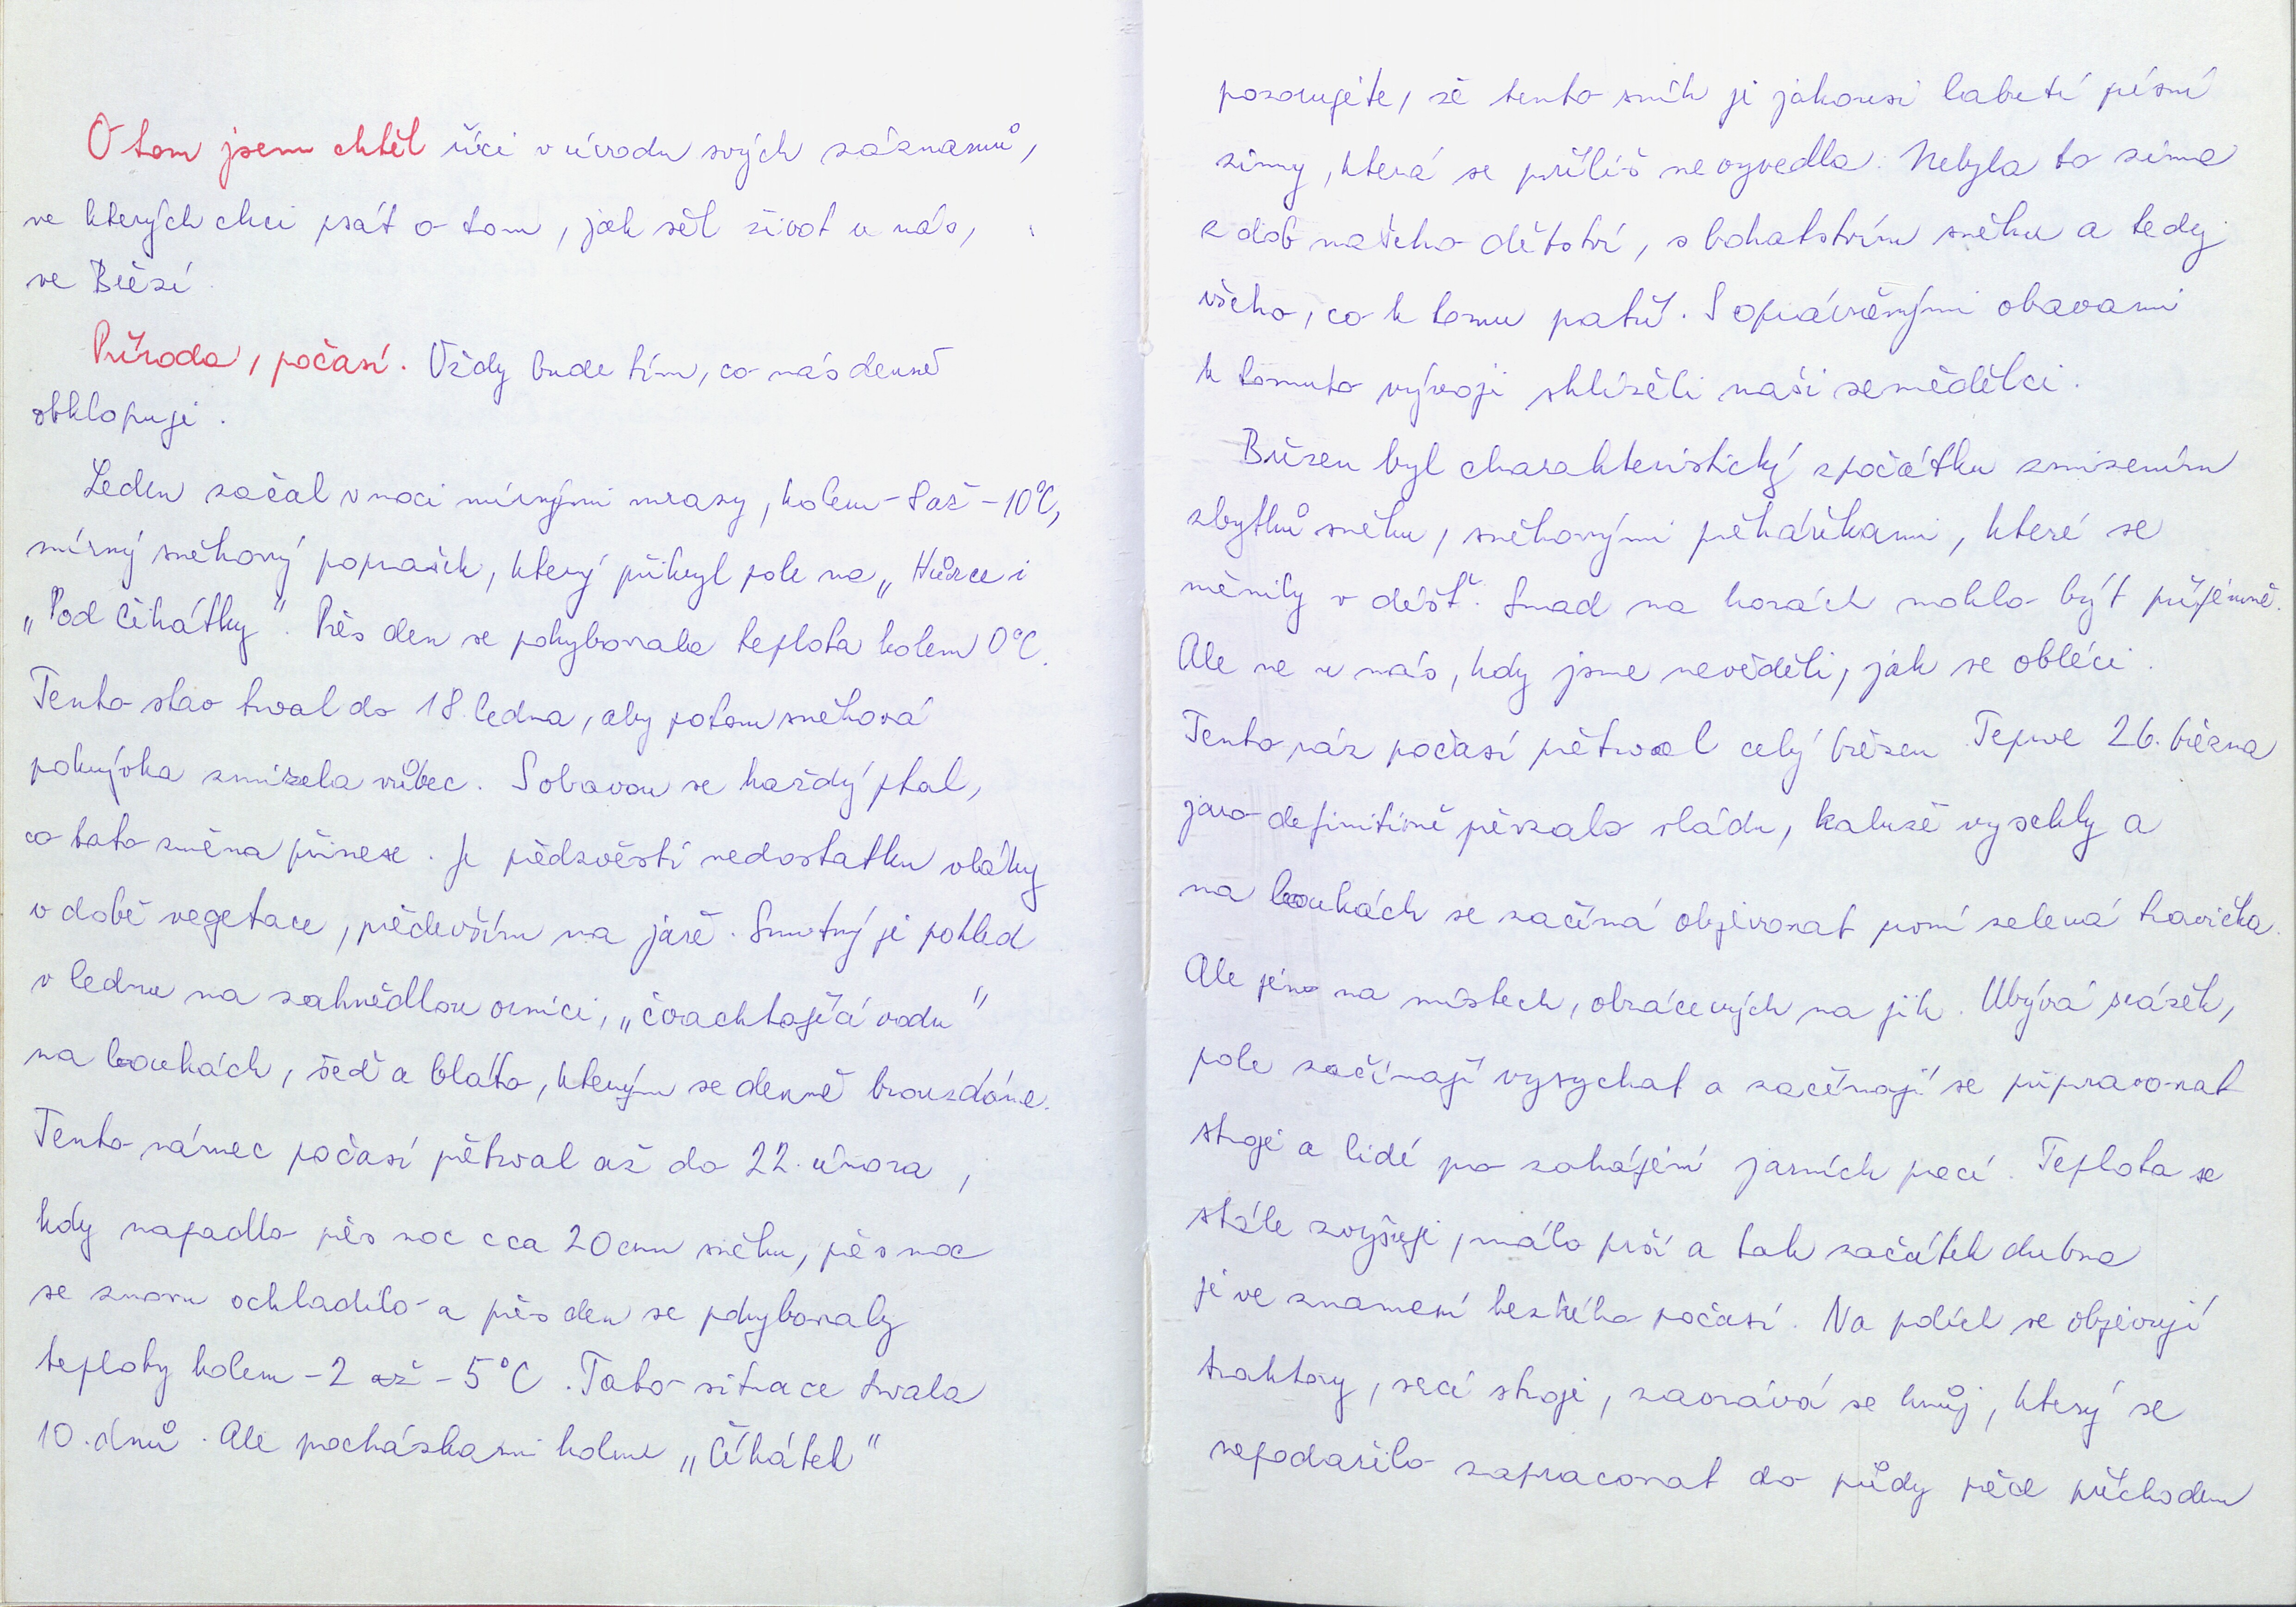 O tom jsem chtěl říci v úvodu svých záznamů,
ve kterých chci psát o tom, jak šel život u nás,
ve Březí.
Příroda, počasí. Vždy bude tím, co nás denně
obklopuje.
Leden začal v noci mírnými mrazy, kolem -8 až -10°C,
mírný sněhový poprašek, který přikryl pole na „Hůrce i
„Pod Číhátky". Přes den se pohybovala teplota kolem 0°C.
Tento stav trval do 18. ledna, aby potom sněhová
pokrývka zmizela vůbec. S obavou se každý ptal,
co tato změna přinese. Je předzvěstí nedostatku vláhy
v době vegetace, především na jaře. Smutný je pohled
v lednu na zahnědlou ornici, „čvachtající vodu"
na loukách, šeď a bláto, kterým se denně brouzdáme.
Tento rámec počasí přetrval až do 22. února,
kdy napadlo přes noc cca 20 cm sněhu, přes noc
se znovu ochladilo a přes den se pohybovaly
teploty kolem -2 až -5°C. Tato situace trvala
10. dnů. Ale procházkami kolem „Číhátek"
pozorujete, že tento sníh je jakousi labutí písní
zimy, která se příliš nevyvedla. Nebyla to zima
z dob našeho dětství, s bohatstvím sněhu a tedy
všeho, co k tomu patří. S oprávněnými obavami
k tomuto vývoji shlíželi naši zemědělci.
Březen byl charakteristický zpočátku zmizením
zbytků sněhu, sněhovými přeháňkami, které se
měnily v déšť. Snad na horách mohlo být příjemně.
Ale ne u nás, kdy jsme nevěděli, jak se obléci.
Tento ráz počasí přetrval celý březen. Teprve 26. března
jaro definitivně převzalo vládu, kaluže vyschly a
na loukách se začíná objevovat první zelená travička.
Ale jen na místech, obrácených na jih. Ubývá srážek,
pole začínají vysychat a začínají se připravovat
stroje a lidé pro zahájení jarních prací. Teplota se
stále zvyšuje, málo prší a tak začátek dubna
je ve znamení hezkého počasí. Na polích se objevují
traktory, secí stroje, zaorává se hnůj, který se
nepodařilo zapracovat do půdy před příchodem